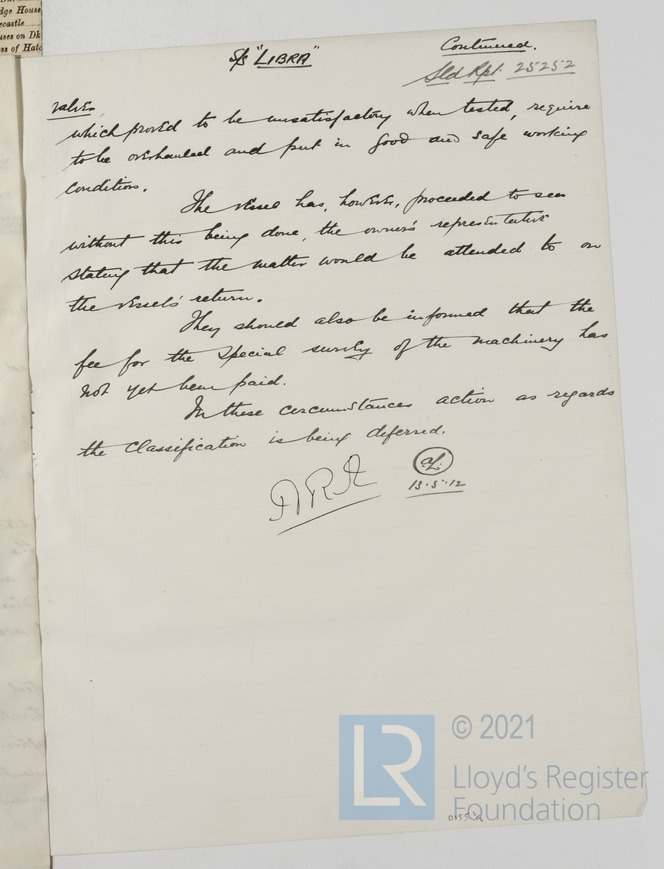 dge House
ecastle
uses on Dk
ss of Hatc
S/s "LIBRA"
Continued.
Sld Rpt. 25252
valves
which proved to be unsatisfactory when tested, require
to be overhauled and put in good and safe working
condition.
The vessel has, however, proceeded to sea
without this being done, the owner's representative
stating that the matter would be attended to on
the vessel's return.
They should also be informed that the
fee for the special survey of the machinery has
not yet been paid.
In these circumstances action as regards
the classification is being deferred.
15.5.12
LR
© 2021
Lloyd's Register
Foundation